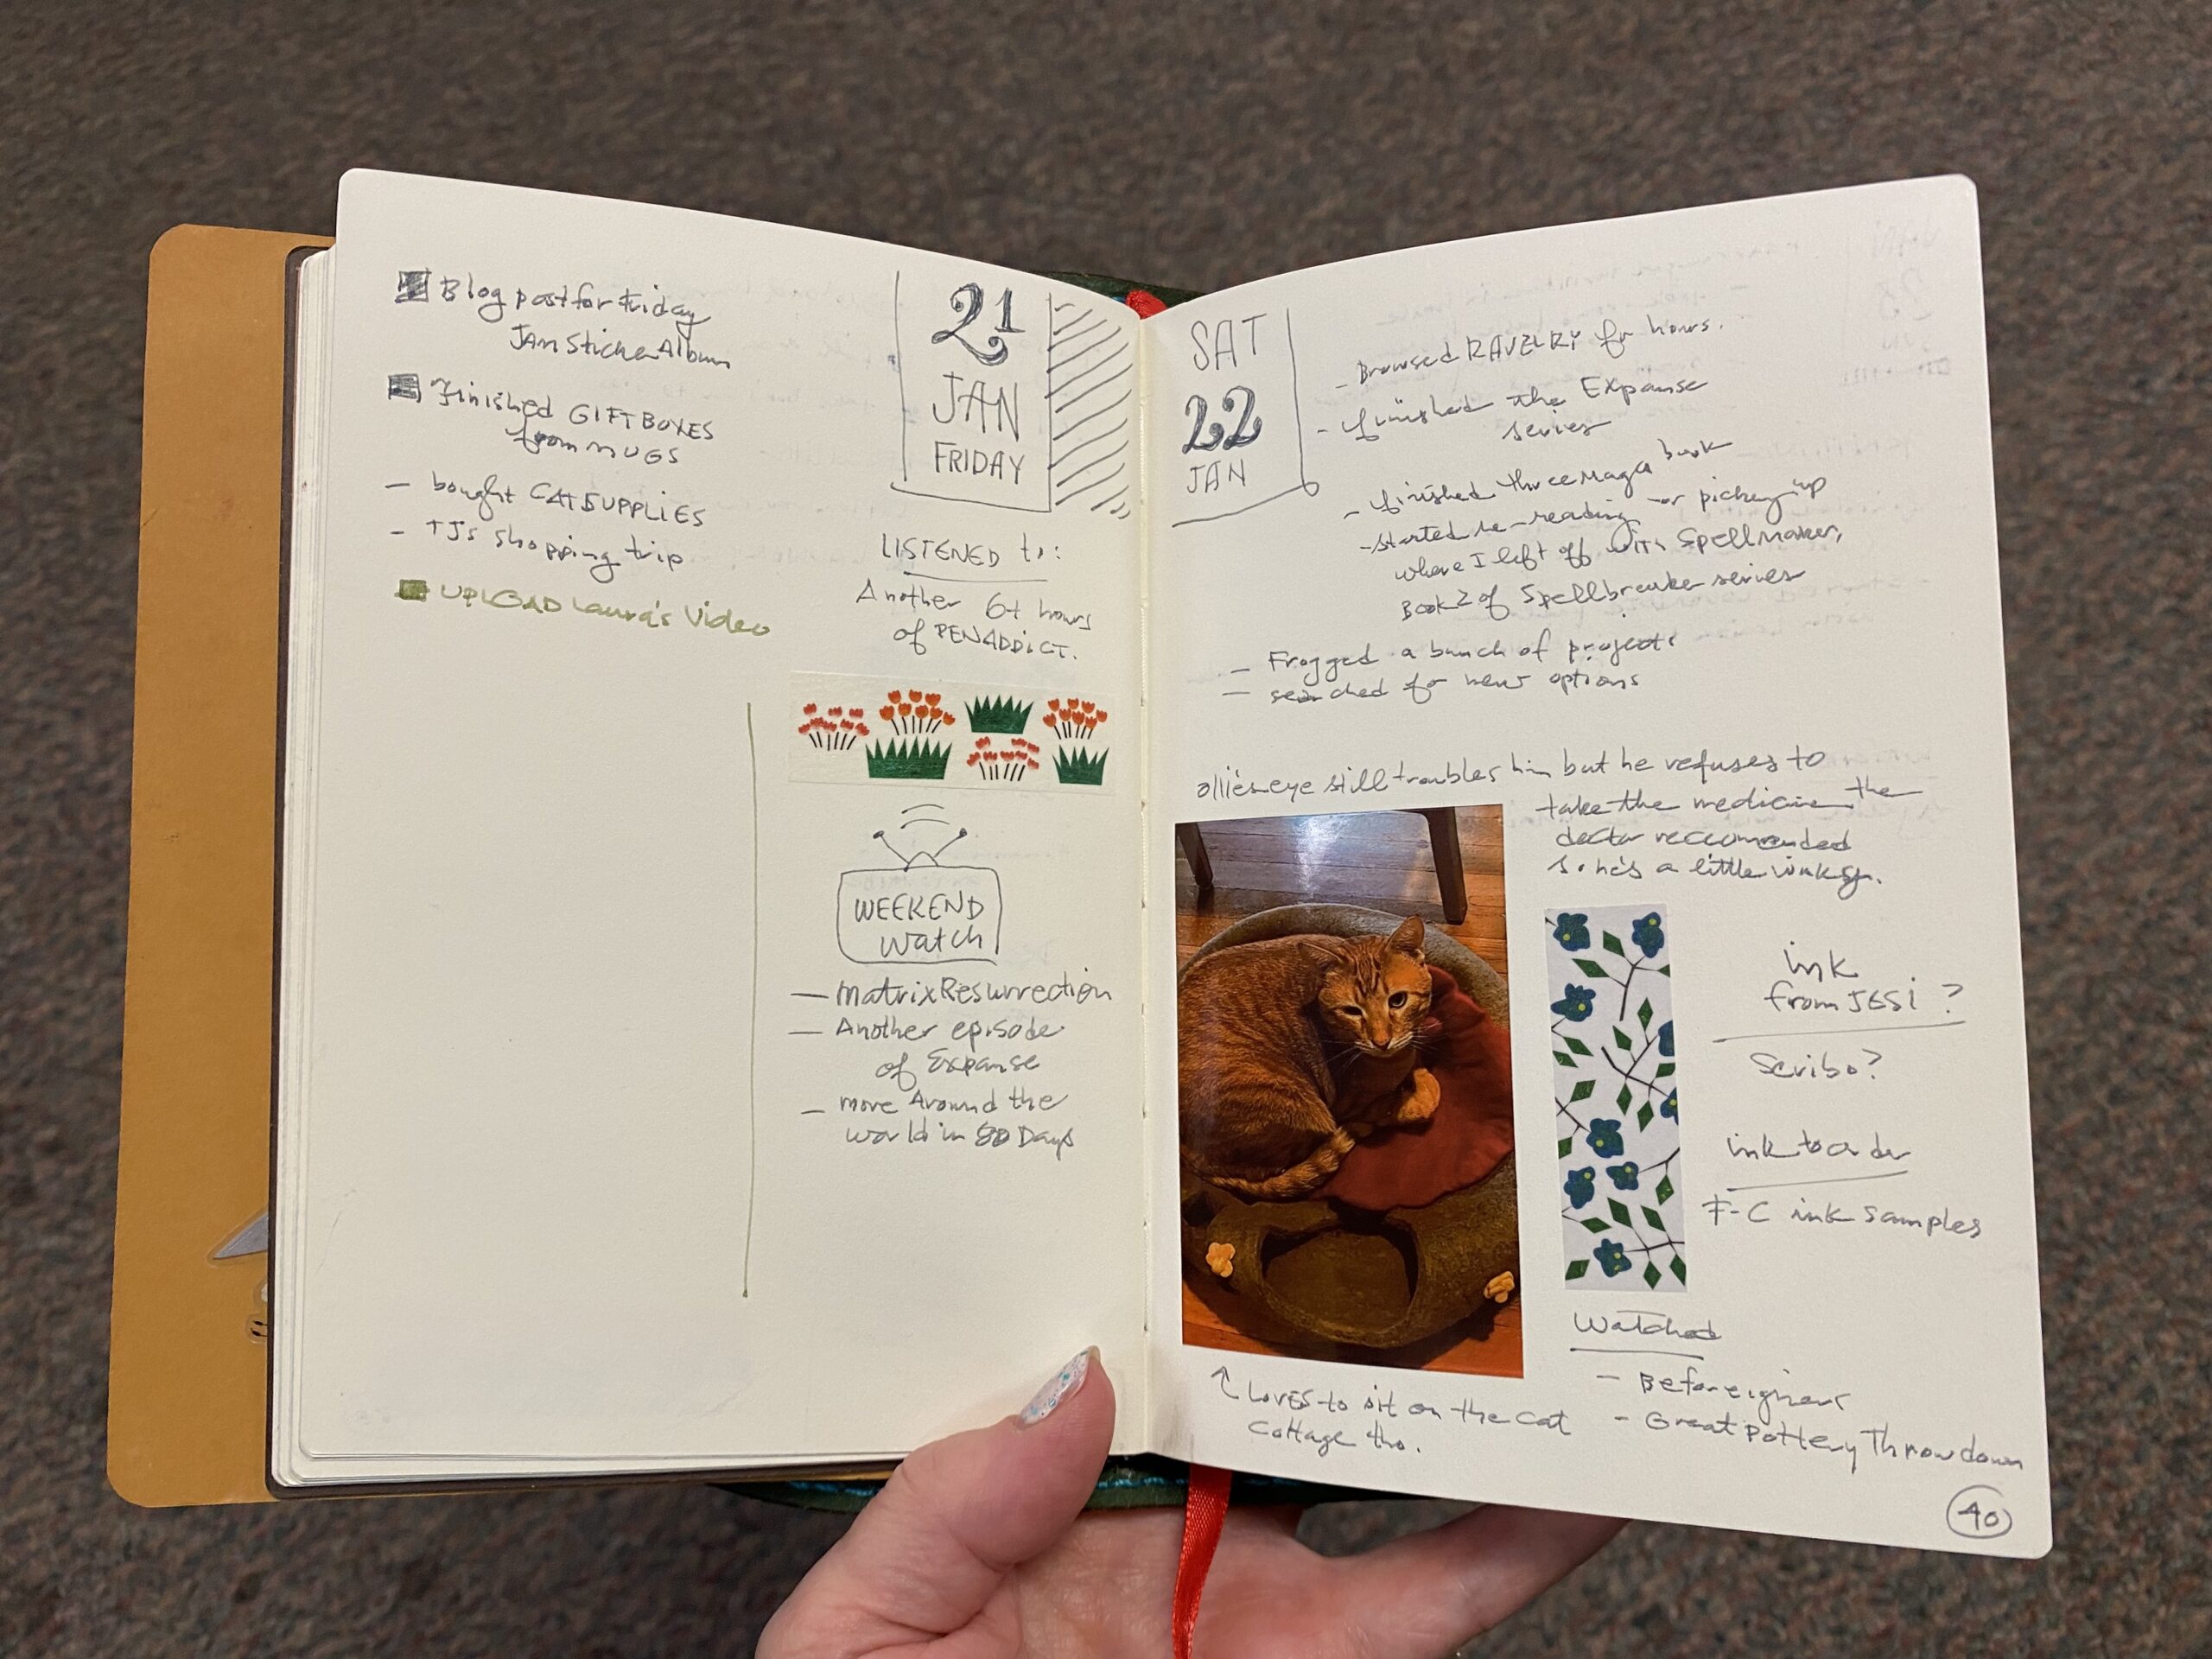 Blog post for Friday
Jan Sticker Album
Finished GIFT BOXES
from MUGS
- bought CAT SUPPLIES
- TJs shopping trip
UPLOAD Laura's Video
21
JAN
FRIDAY
LISTENED to:
Another 6+ hours
of PEN ADDICT.
WEEKEND
Watch
- Matrix Resurrection
- Another episode
of Expanse
- more Around the
world in 80 Days
SAT
22
JAN
- Browsed RAVELRY for hours.
- finished the Expanse
series
- finished three Maga book
- started re-reading - or picking up
where I left off with Spellmaker,
Book 2 of Spellbreaker series
- Frogged a bunch of projects
- searched for new options
ollie's eye still troubles him but he refuses to
take the medicine the
doctor reccomended
so he's a little winky.
ink
from JESi?
Scribo?
ink to order
F-C ink samples
Watched
- Beforeigners
- Great Pottery Throwdown
↑ LOVES to sit on the cat
cottage tho.
40